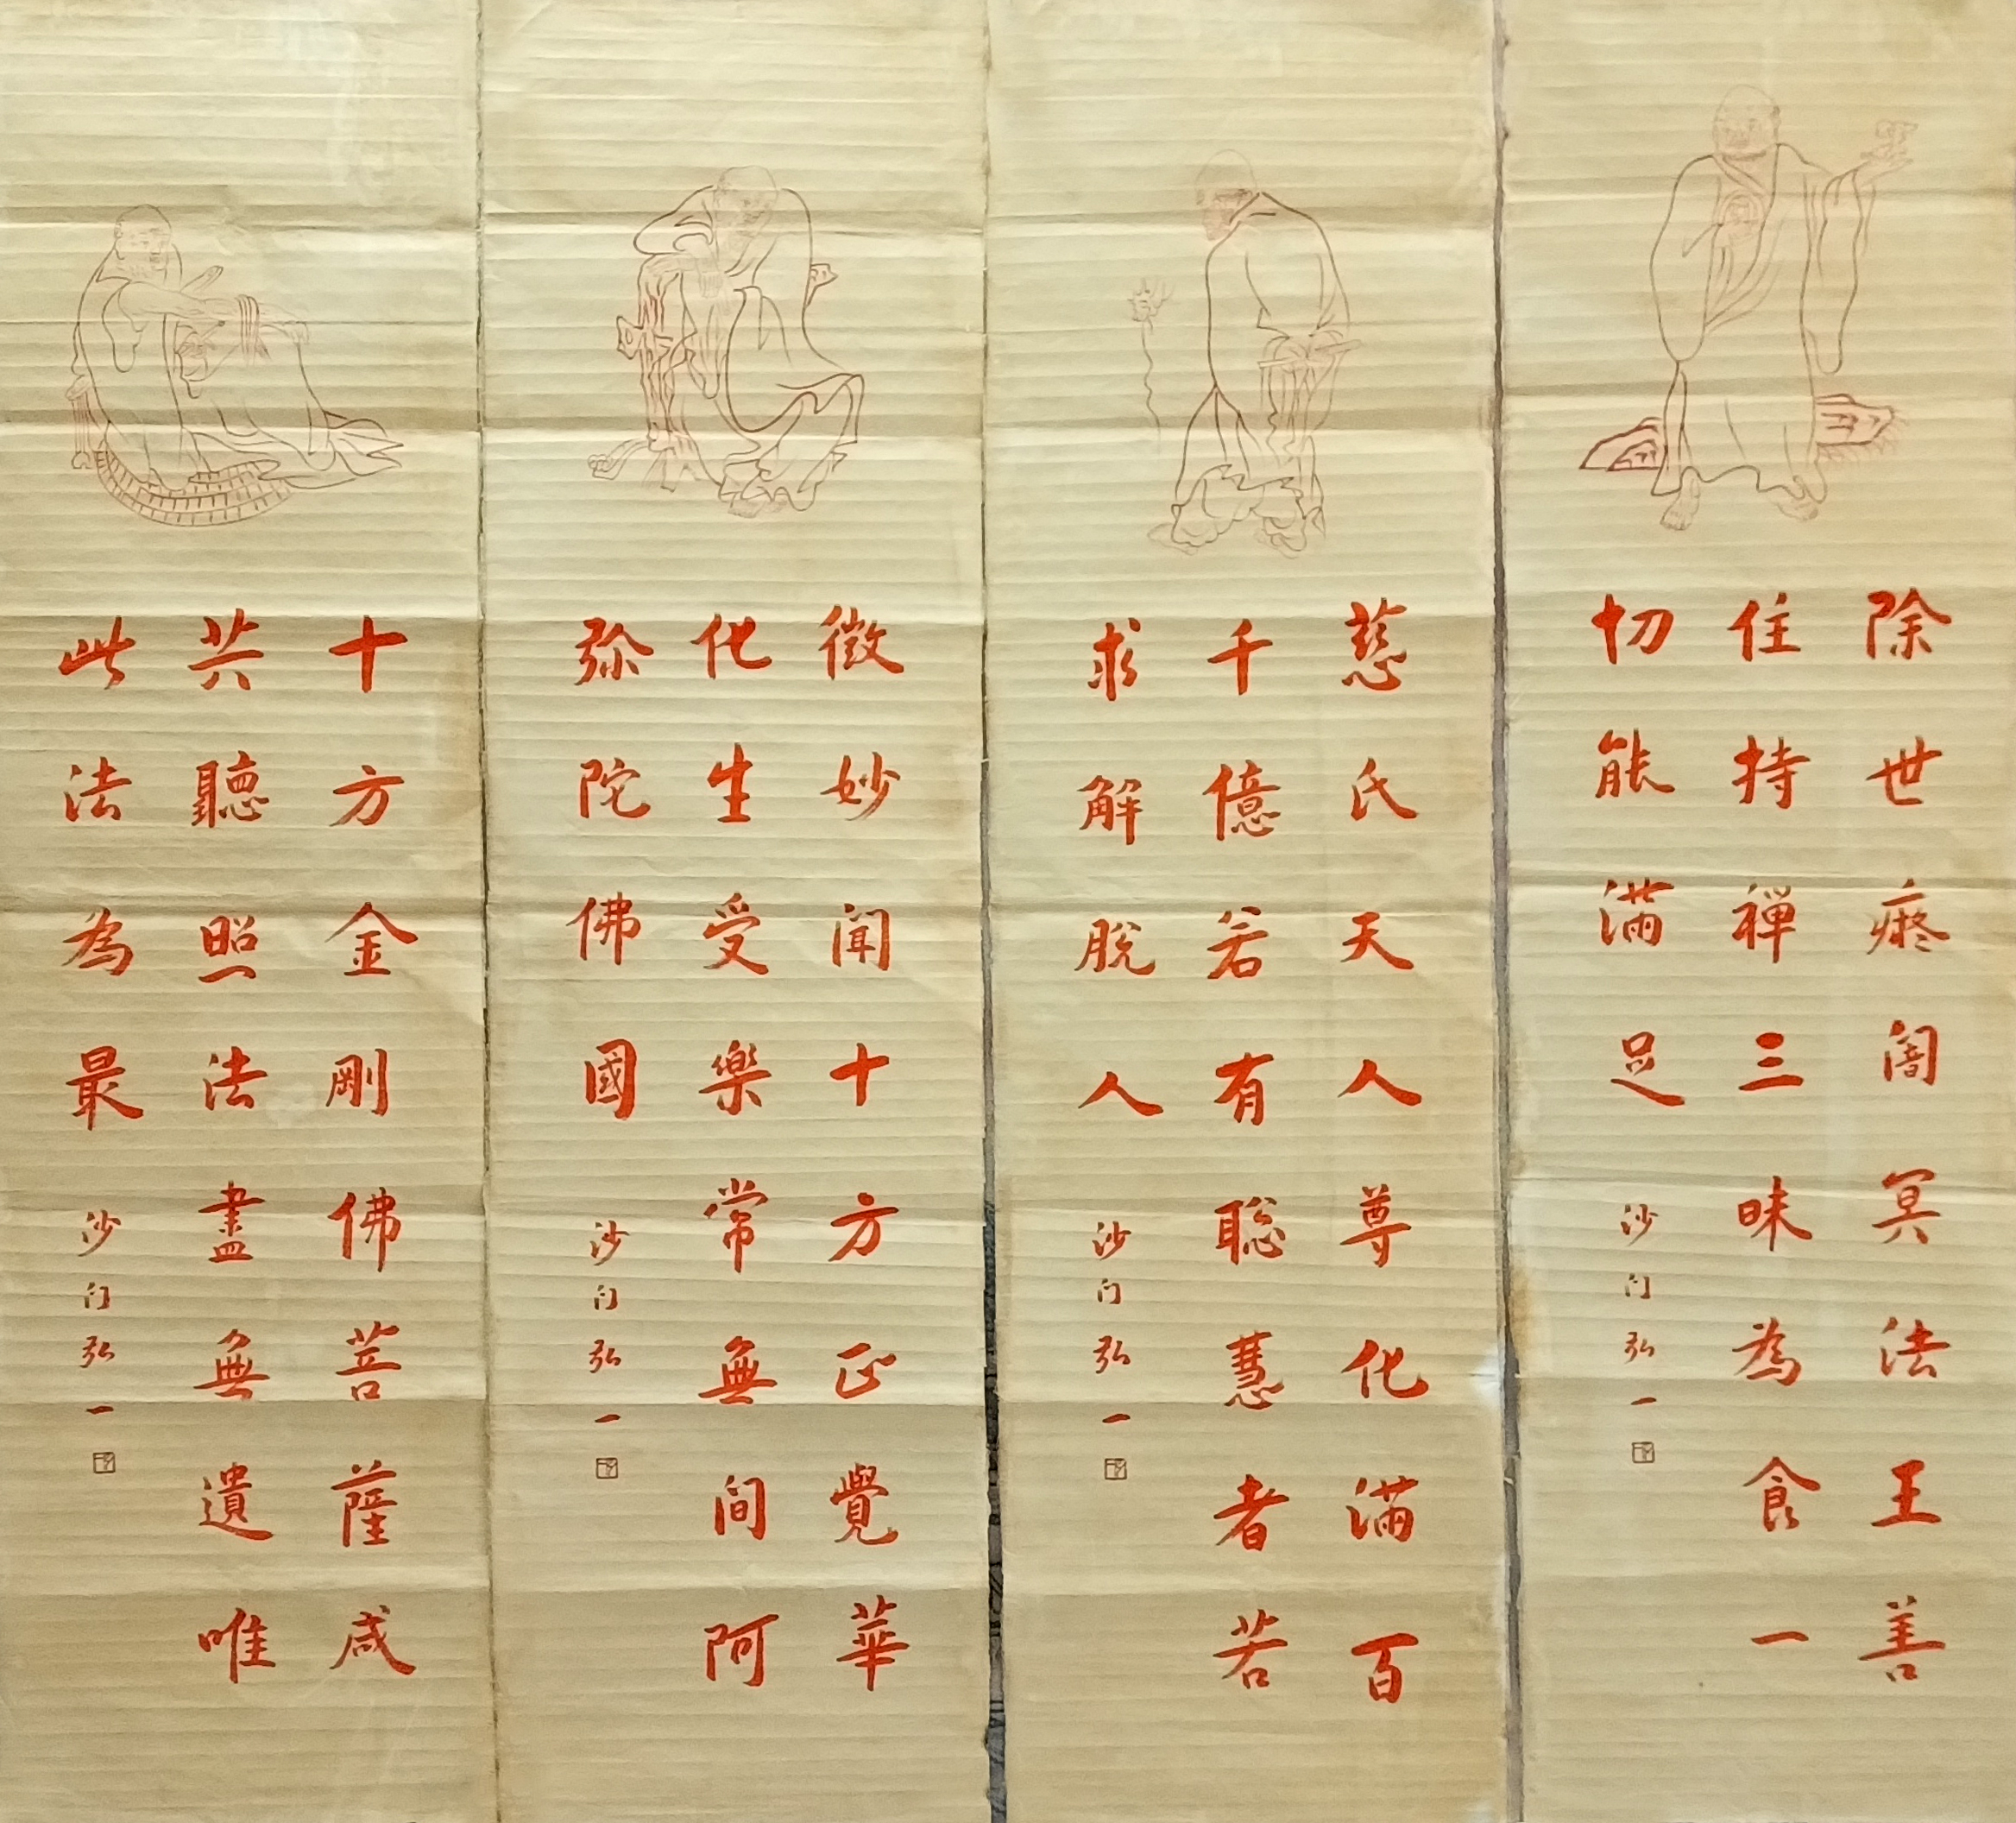 除世癡闇冥法王善
住持禪三昧為食一
切能滿足
沙门弘一
慈氏天人尊化滿百
千億若有聡慧者若
求解脫人
沙门弘一
徵妙闻十方正覺華
化生受樂常無间阿
弥陀佛國
沙门弘一
十方金剛佛菩薩咸
共聽照法盡無遺唯
此法為最
沙门弘一